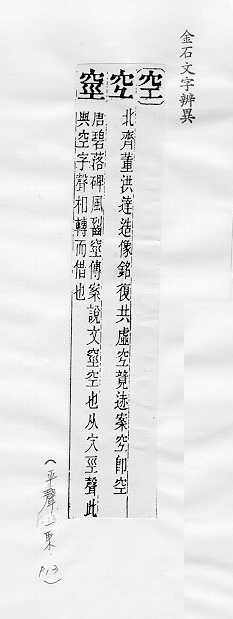 金石文字辨異
〔空〕
空 北齊董洪達造像銘復共虛空競 案空卽空
唐碧落碑風 傳案說文 空也从穴巠聲此
與空字聲和轉而借也
(平聲一東 P13)